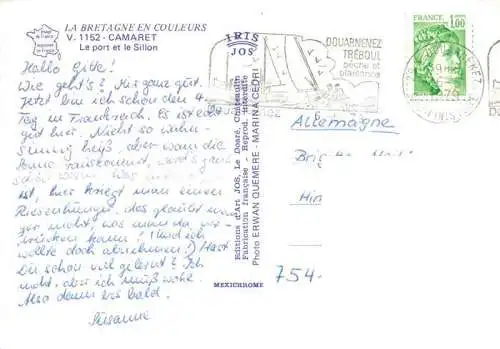 LA BRETAGNE EN COULEURS
V. 1152 - CAMARET
Le port et le Sillon
IRIS
JOS
MEXICHROME
Editions d'Art JOS, Le Doaré, Châteaulin
Fabrication française - Reprod. interdite
Photo ERWAN QUEMERE - MARINA CEDRI
DOUARNENEZ
TRÉBOUL
pêche et
plaisance
FRANCE
1,00
Hallo Gitte!
Wie geht's? Mir ganz gut.
Jetzt bin ich schon den 4.
Tag in Frankreich. Es ist echt
gut hier. Nicht so wahn-
sinnig heiß, aber wenn die
Sonne rauskommt, wird's ganz
schön warm. Was
ist, hier kriegt man einen
Riesenhunger, das glaubt man
gar nicht, was man da ver-
drücken kann! (Und ich
wollte doch abnehmen!) Hast
Du schon viel gelernt? Ich
nicht, aber ich müßte.
Also dann bis bald.
Susanne
Allemagne
754-